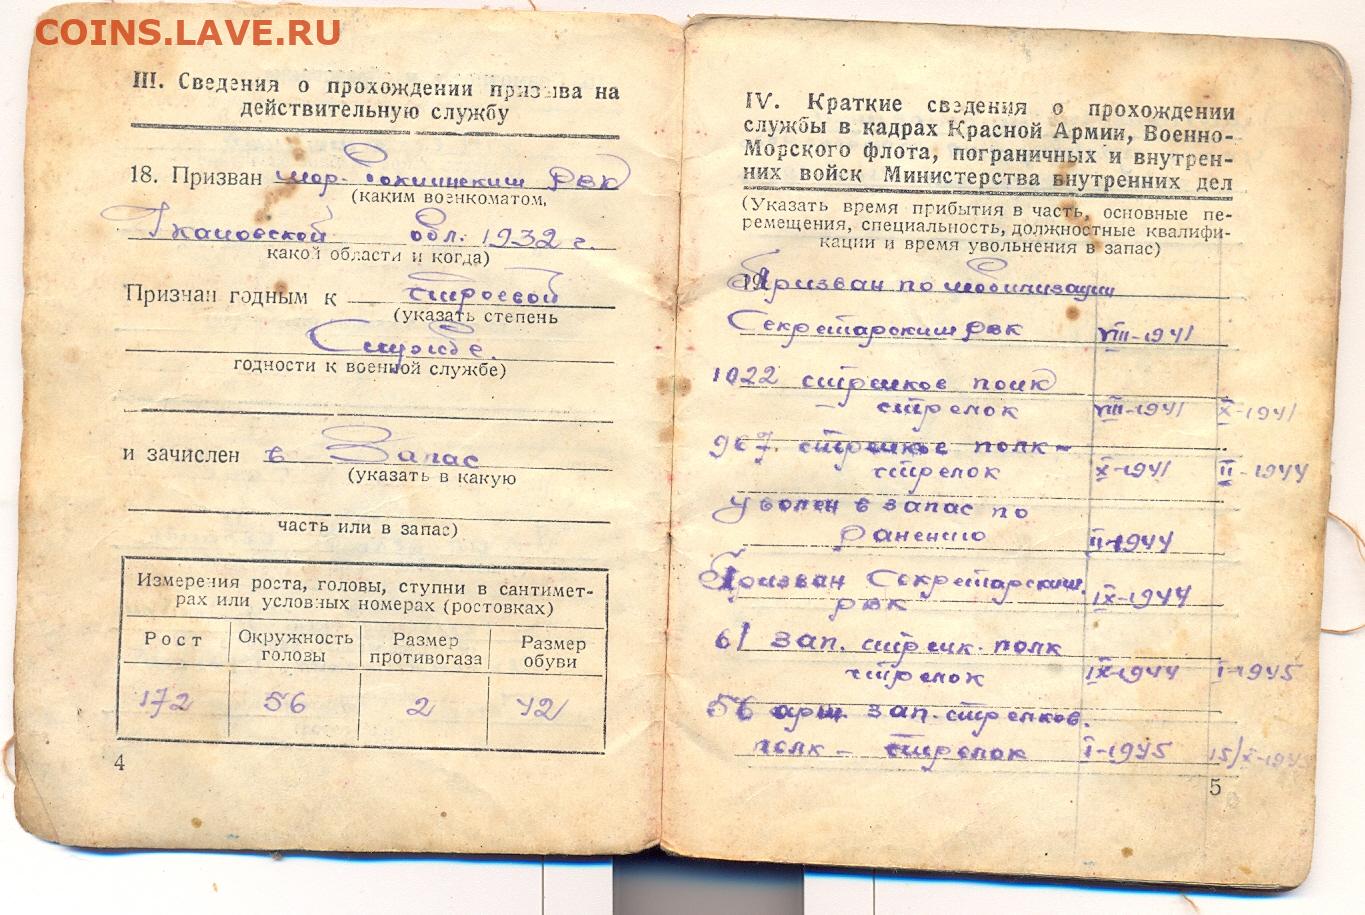 COINS.LAVE.RU
III. Сведения о прохождении призыва на
действительную службу
18. Призван РВК
(каким военкоматом,
обл. 1932 г.
какой области и когда)
Признан годным к строевой
(указать степень
службе.
годности к военной службе)
и зачислен в Запас
(указать в какую
часть или в запас)
Измерения роста, головы, ступни в сантимет-
рах или условных номерах (ростовках)
Рост Окружность головы Размер противогаза Размер обуви
172 56 2 42
4
IV. Краткие сведения о прохождении
службы в кадрах Красной Армии, Военно-
Морского флота, пограничных и внутрен-
них войск Министерства внутренних дел
(Указать время прибытия в часть, основные пе-
ремещения, специальность, должностные квалифи-
кации и время увольнения в запас)
19. Призван по мобилизации
Секретарским РВК VIII-1941
1022 стрелкое полк
– стрелок VIII-1941 X-1941
967 стрелкое полк –
стрелок X-1941 II-1944
уволен в запас по
ранению II-1944
Призван Секретарским
РВК IX-1944
61 зап. стрелк. полк
стрелок IX-1944 I-1945
56 арм. зап. стрелков.
полк – стрелок I-1945 15/X-1945
5